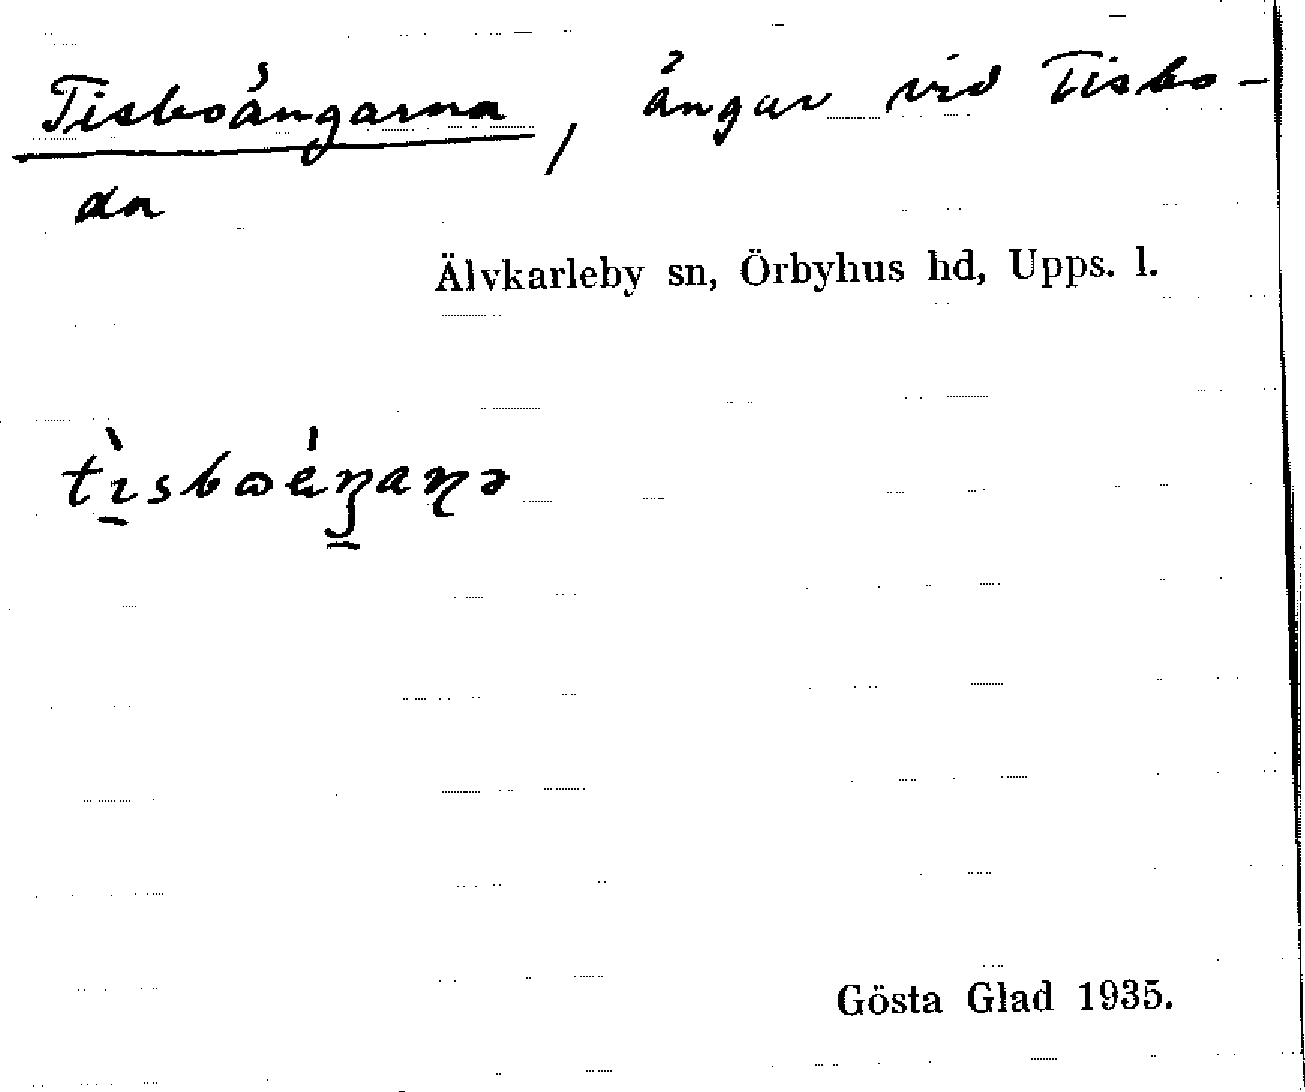 Tisboängarna, ängar vid Tisbo-
dn
Älvkarleby sn, Örbyhus hd, Upps. l.
Gösta Glad 1935.